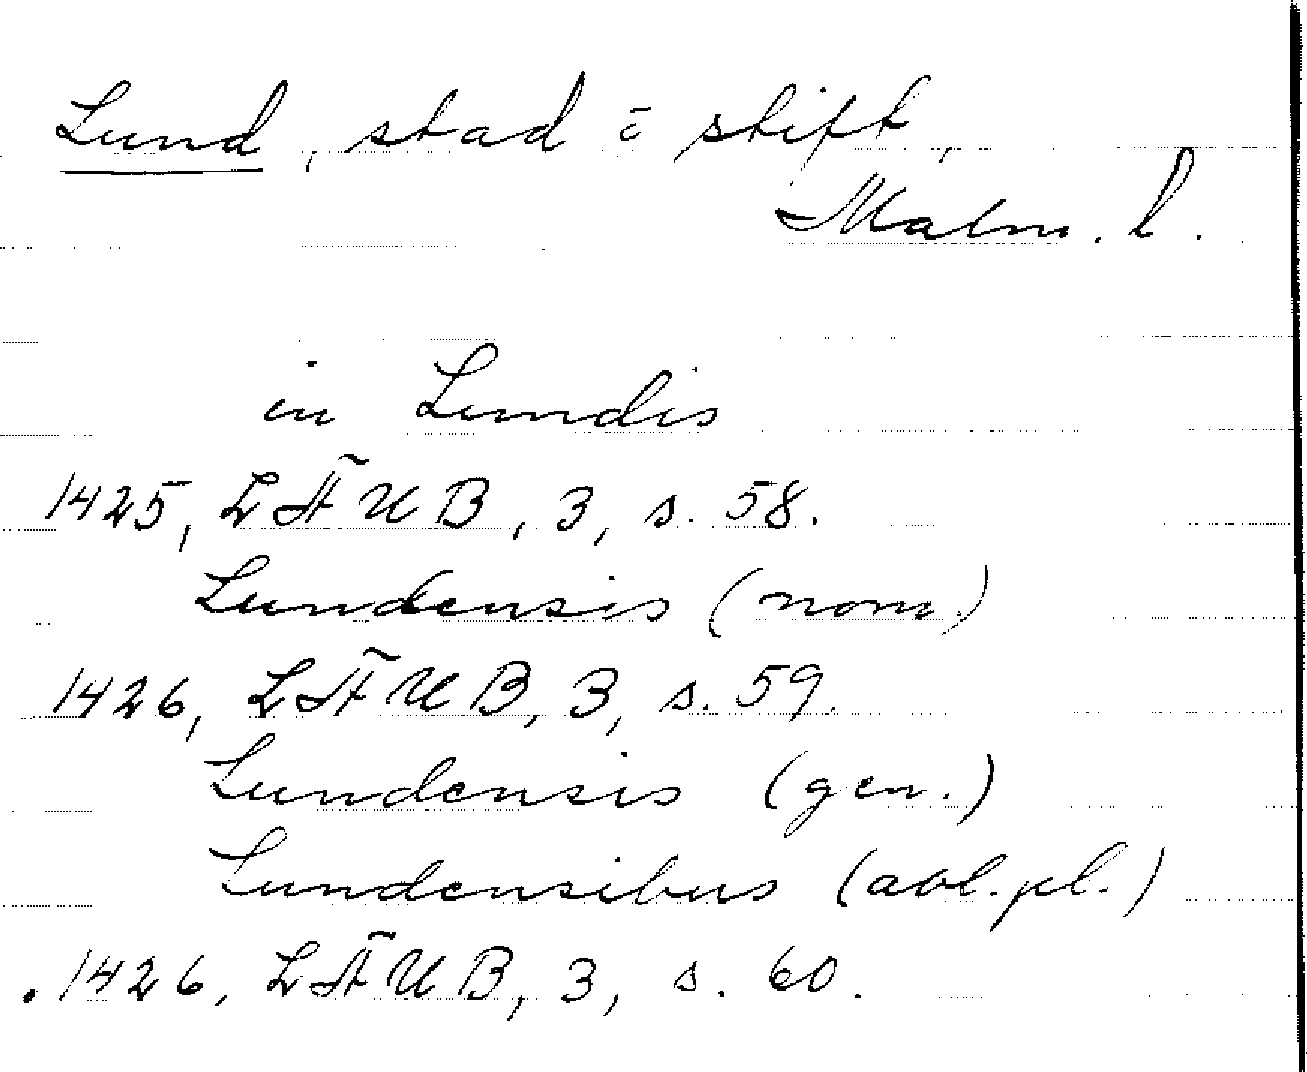 Lund, stad o stift,
Malm. l.
in Lundis
1425, LÄUB, 3, s. 58.
Lundensis (nom.)
1426, LÄUB, 3, s. 59.
Lundensis (gen.)
Lundensibus (abl. pl.)
1426, LÄUB, 3, s. 60.